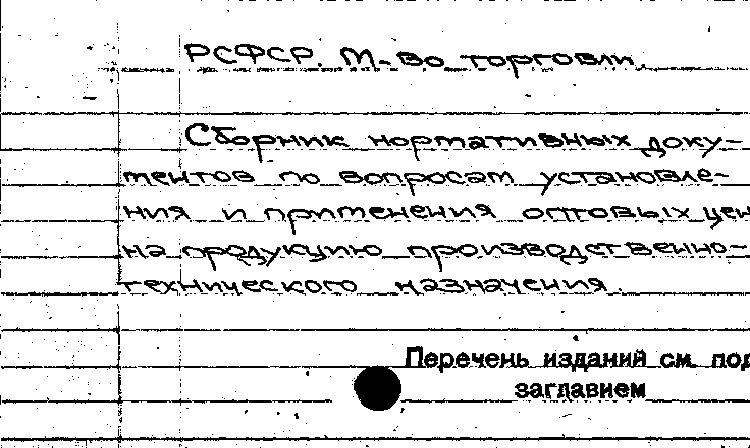 РСФСР. М-во торговли.
Сборник нормативных доку-
ментов по вопросам установле-
ния и применения оптовых цен
на продукцию производственно-
технического назначения.
Перечень изданий см. под
заглавием